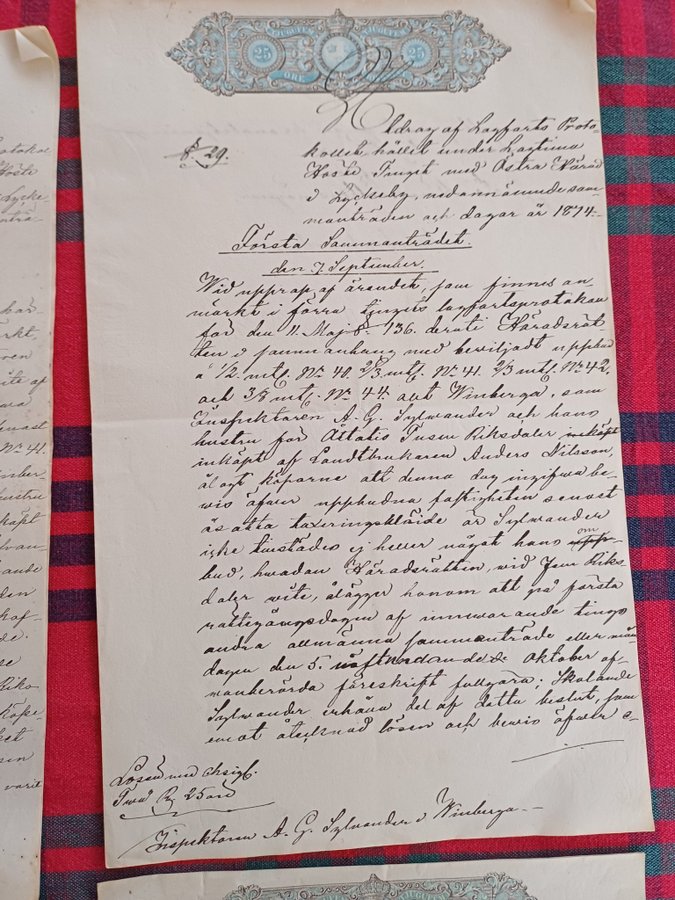 TJUGUFEM
25
ÖRE
Utdrag af Lagfarts Proto-
kollet hållet under Lagtima
Höste Tinget med Östra Härad
i Lyckeby, nedannämnde sam
manträden och dagar år 1874.
§. 29.
Första Sammanträdet
den 7 September.
Wid upprop af ärendet, som finnes an
märkt i förra tingets lagfartsprotokoll
för den 11 Maj §. 136. deruti Häradsrät
ten i sammanhang med beviljadt uppbud
å 1/2 mtl. No 40, 2/3 mtl. No 41. 2/3 mtl. No 42,
och 3/8 mtl. No 44. allt Winberga, som
Inspektoren A. G. Sylwander och hans
hustru för Åttatio Tusen Riksdaler inköpt
inköpt af Landtbrukaren Anders Nilsson,
ålagt köparne att denna dag ingifwa be
wis öfwer uppbudna fastigheten senast
åsatta taxeringsvärde är Sylwander
icke tillstädes ej heller något hans om
bud, hwadan Häradsrätten, wid Fem Riks
daler wite, ålägger honom att på första
rättegångsdagen af innewarande tings
andra allmänna sammanträde eller mån
dagen den 5. October of
vanberörda föreskrift fullgöra; Skolande
Sylwander erhålla del af detta beslut, som
emot återlnad lösen och bewis öfwer e-
Lösen med chsigl.
Twå Rd 25 öre
Inspektoren A. G. Sylwander i Winberga